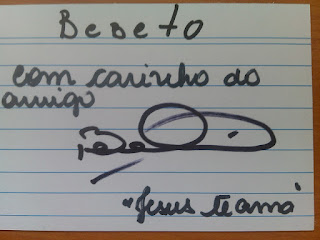 Bebeto
com carinho do
amigo
"Jesus te ama"